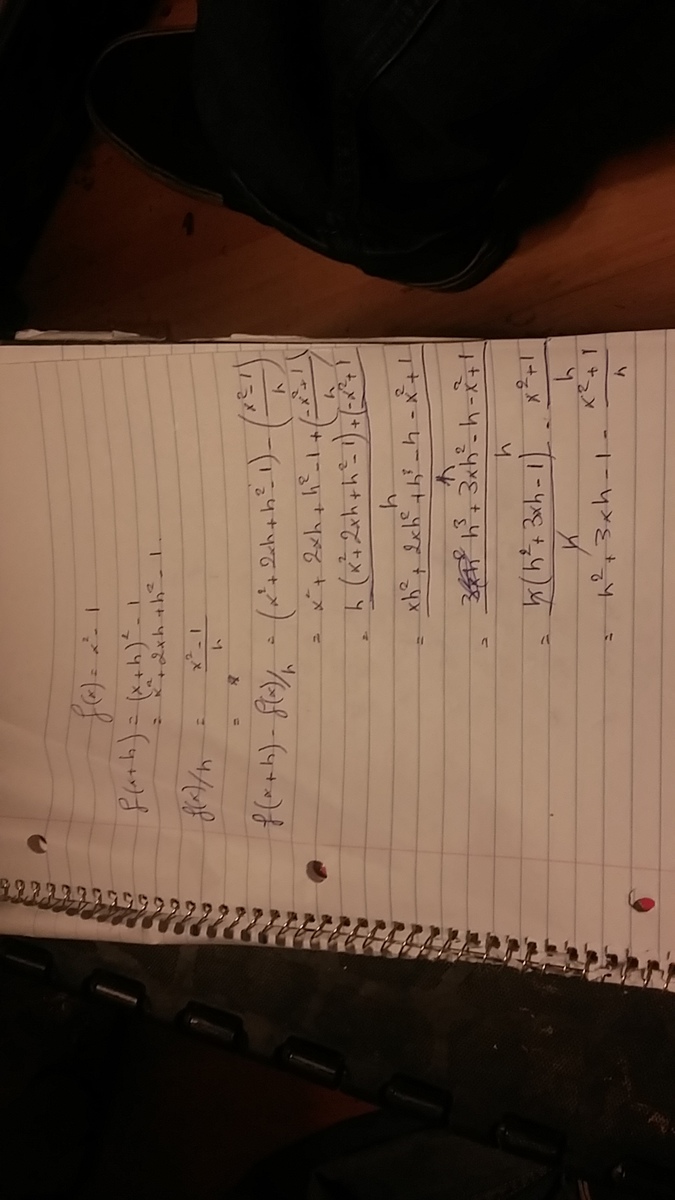 f(x) = x² - 1
f(x+h) = (x+h)² - 1
= x² + 2xh + h² - 1
f(x)/h = (x² - 1)/h
=
f(x+h) - f(x)/h = (x² + 2xh + h² - 1) - ((x² - 1)/h)
= x² + 2xh + h² - 1 + ((-x² + 1)/h)
= (h(x² + 2xh + h² - 1) + (-x² + 1))/h
= (xh² + 2xh² + h³ - h - x² + 1)/h
= (h³ + 3xh² - h - x² + 1)/h
= h(h² + 3xh - 1)/h - (x² + 1)/h
= h² + 3xh - 1 - (x² + 1)/h